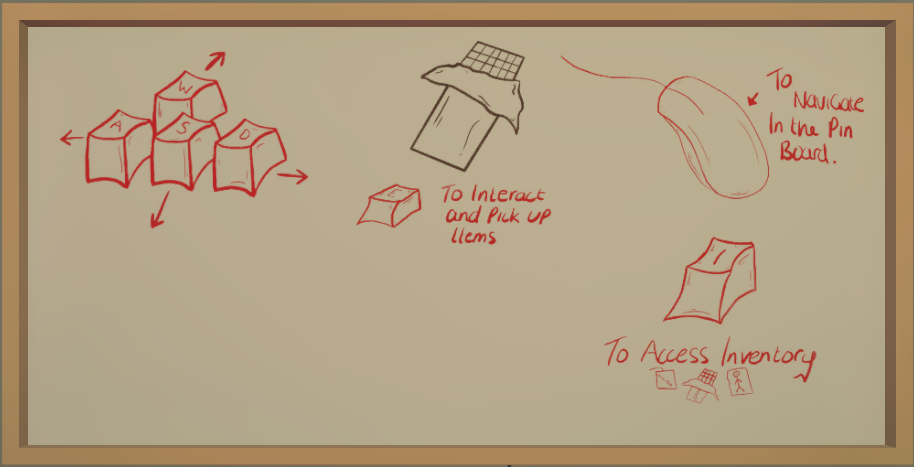 W
A
S
D
E
To Interact
and Pick up
Items
To
Navigate
In the Pin
Board.
I
To Access Inventory